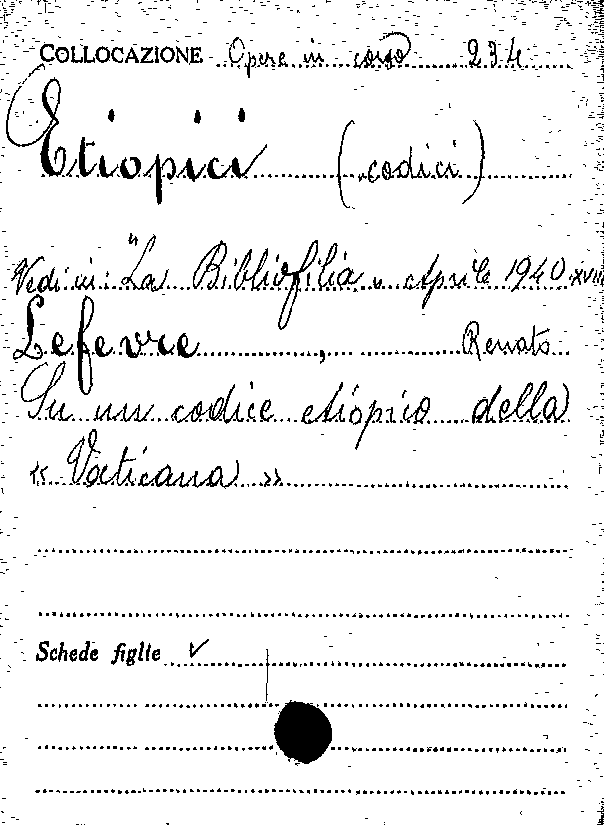 COLLOCAZIONE Opere in corso 234
Etiopici (codici)
Vedi in: "La Bibliofilia„ Aprile 1940 XVIII
Lefevre, Renato
Su un codice etiopico della
« Vaticana »
Schede figlie ✓